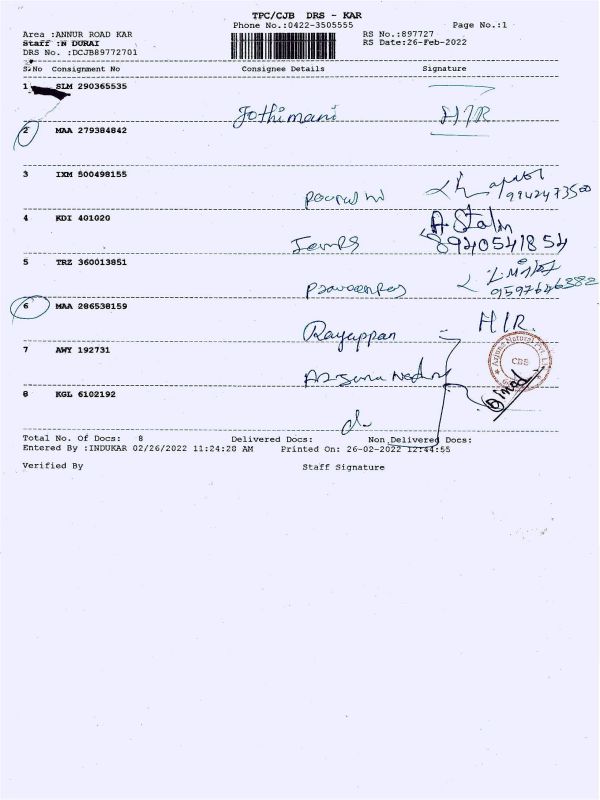 TPC/CJB DRS - KAR
Phone No.:0422-3505555 Page No.:1
Area :ANNUR ROAD KAR RS No.:897727
Staff :N DURAI RS Date:26-Feb-2022
DRS No. :DCJB89772701
S.No Consignment No Consignee Details Signature
1 SLM 290365535
Jothimani H/R
2 MAA 279384842
3 IXM 500498155
9942473500
4 KDI 401020
A. Stalin
James 8940541854
5 TRZ 360013851
9597626382
6 MAA 286538159
Rayappan H/R.
7 AWY 192731
Arjuna Natural Pvt. Lt
CBE
8 KGL 6102192
Total No. Of Docs: 8 Delivered Docs: Non Delivered Docs:
Entered By :INDUKAR 02/26/2022 11:24:28 AM Printed On: 26-02-2022 12:44:55
Verified By Staff Signature